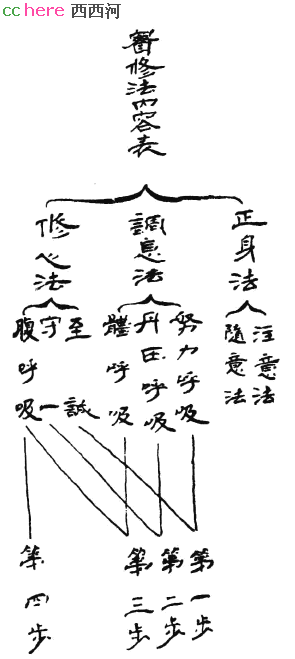 cchere 西西河
醫修法內容表
正身法
調息法
修心法
注意法
隨意法
努力呼吸
丹田呼吸
體呼吸
至誠
守一
腹呼吸
第一步
第二步
第三步
第四步